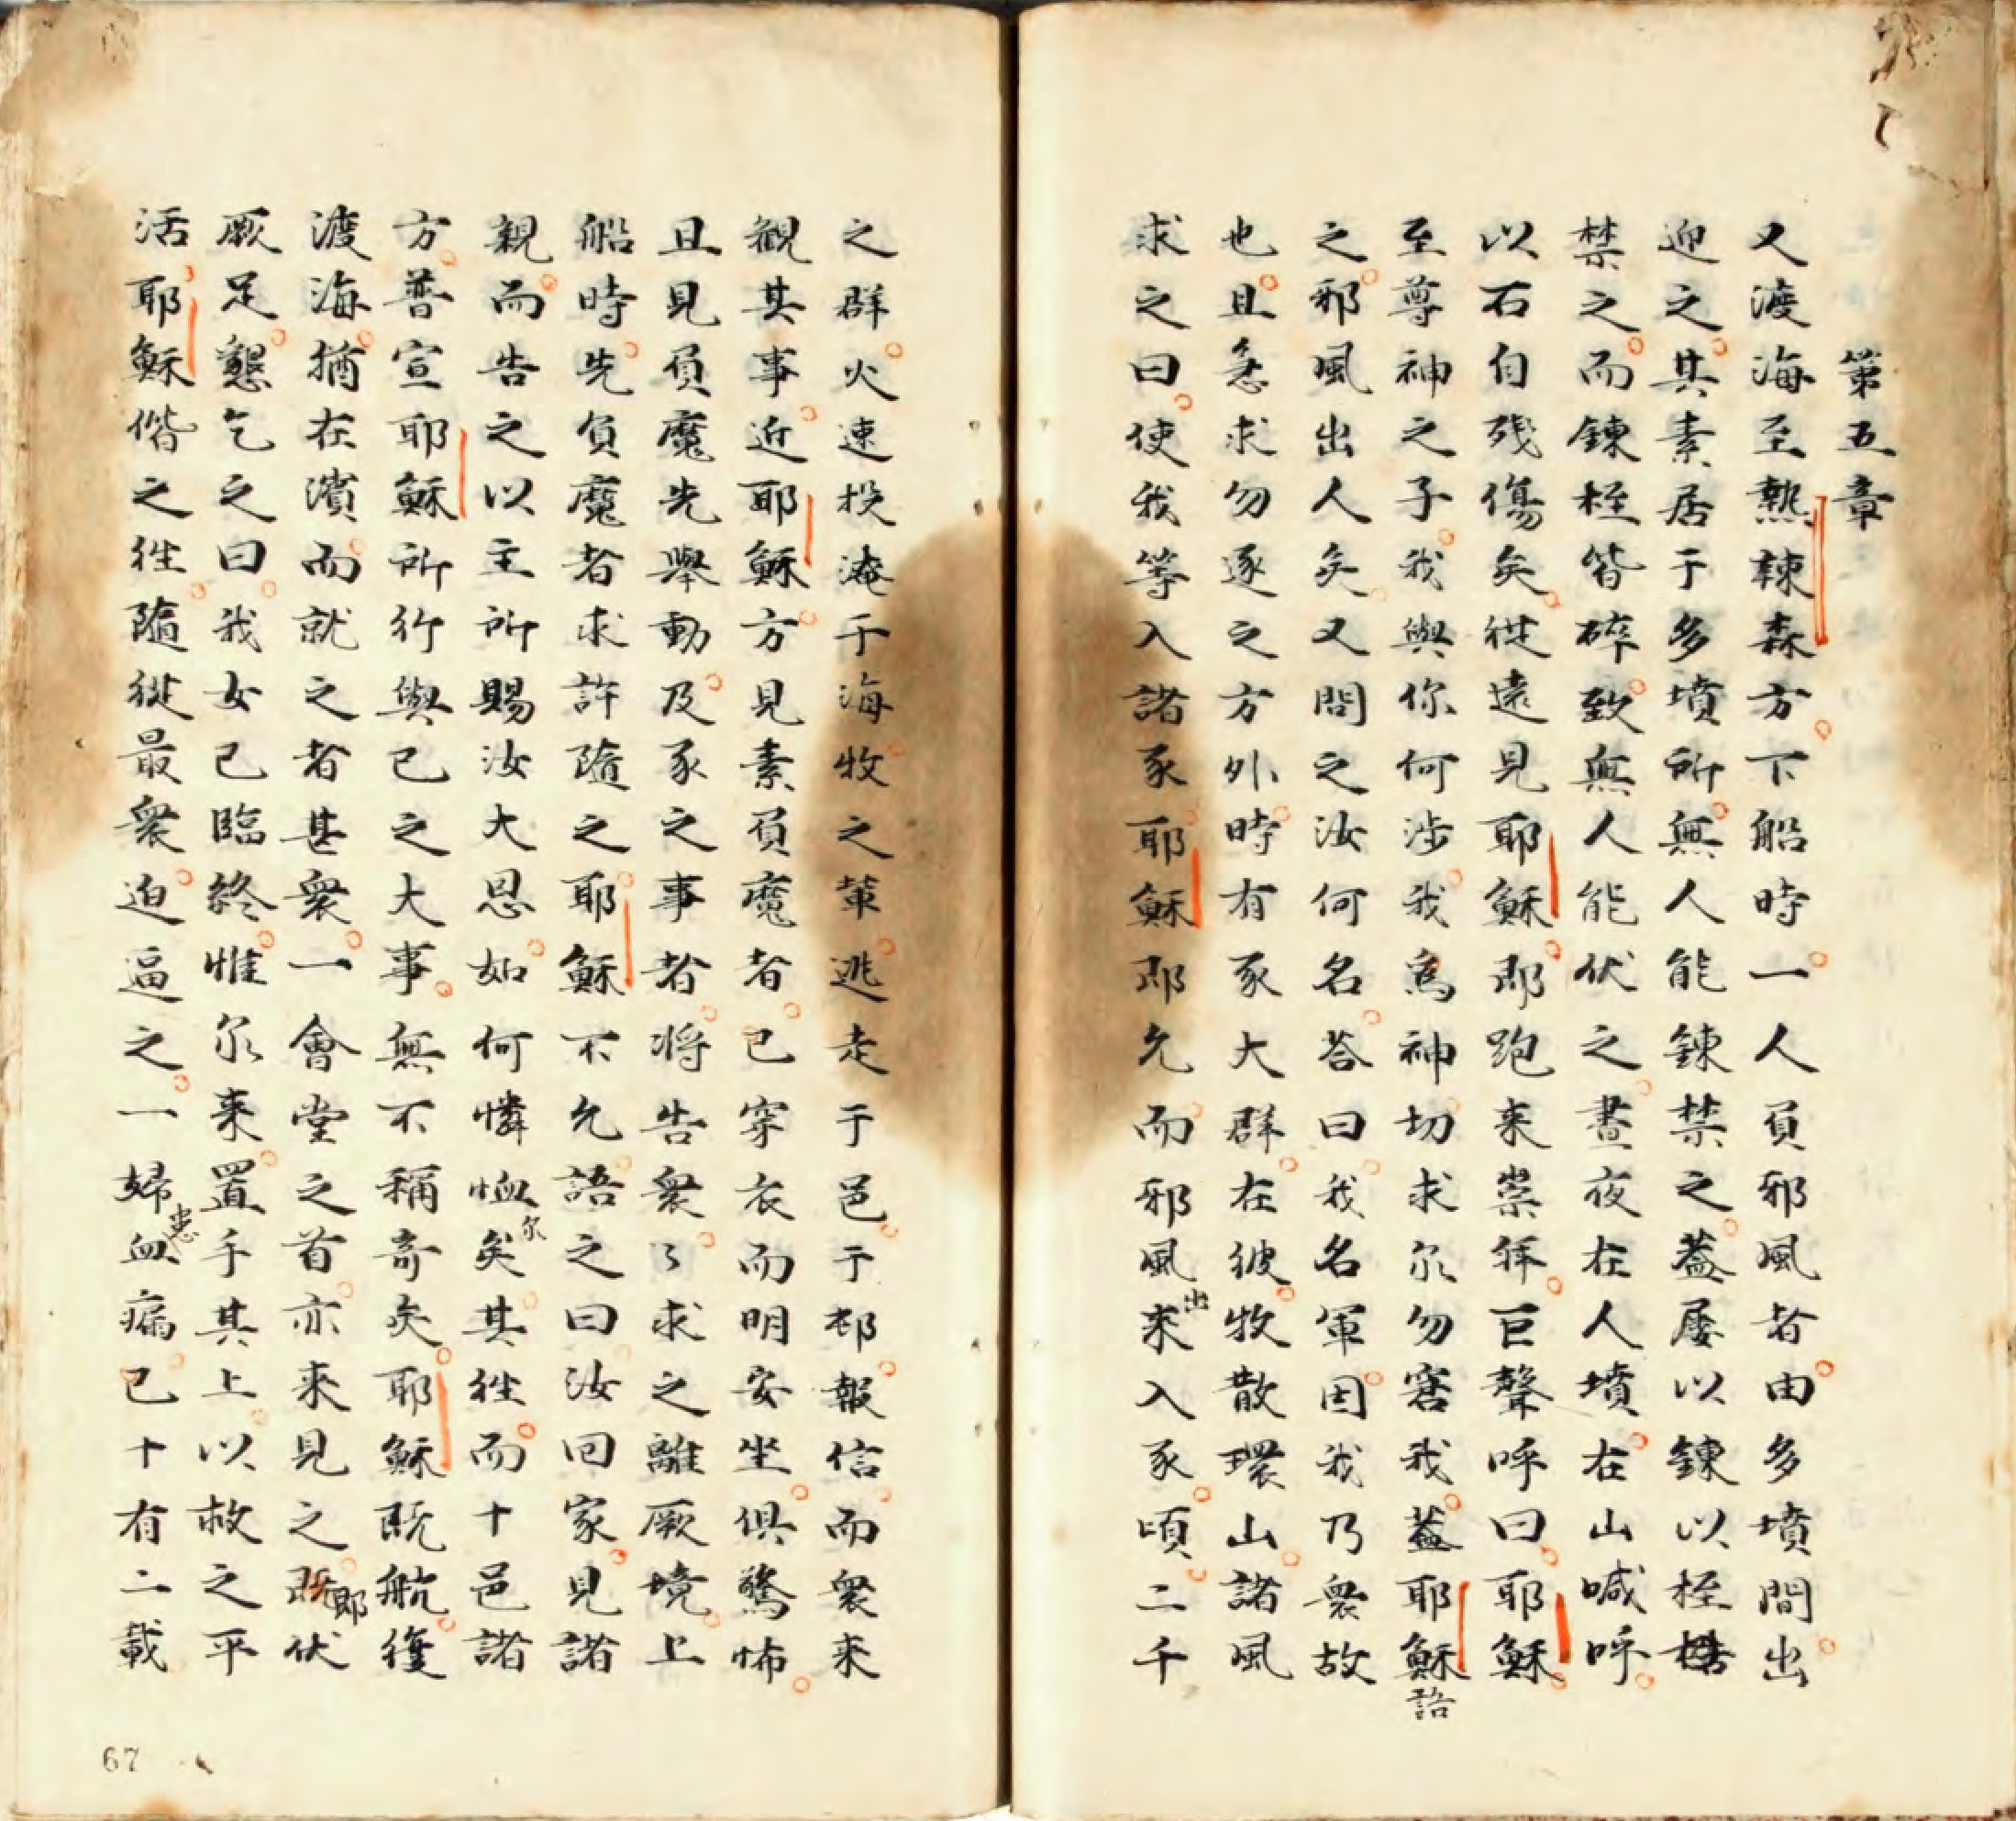 第五章
又渡海至熱棘森方下船時一人負邪風者由多墳間出
迎之其素居于多墳所無人能鍊禁之蓋屡以鍊以桎梏
禁之而鍊桎皆碎致無人能伏之晝夜在人墳在山喊呼
以石自殘傷矣從遠見耶穌即跑来崇拜巨聲呼曰耶穌
至尊神之子我與你何涉我為神切求尔勿害我蓋耶穌語
之邪風出人矣又問之汝何名荅曰我名軍因我乃衆故
也且急求勿逐之方外時有豕大群在彼牧散環山諸風
求之曰使我等入諸豕耶穌即允而邪風出来入豕頃二千
之群火速投淹于海牧之輩逃走于邑于邨報信而衆来
觀其事近耶穌方見素負魔者已穿衣而明安坐俱驚怖
且見負魔先舉動及豕之事者将告衆〻求之離厥境上
船時先負魔者求許隨之耶穌不允語之曰汝回家見諸
親而告之以主所賜汝大恩如何憐恤尔矣其徃而十邑諸
方普宣耶穌所行與已之大事無不稱奇矣耶穌既航復
渡海猶在濱而就之者甚衆一會堂之首亦来見之既即伏
厥足懇乞之曰我女已臨終惟尔来置手其上以救之平
活耶穌偕之徃隨從最衆迫逼之一婦患血漏已十有二載
67